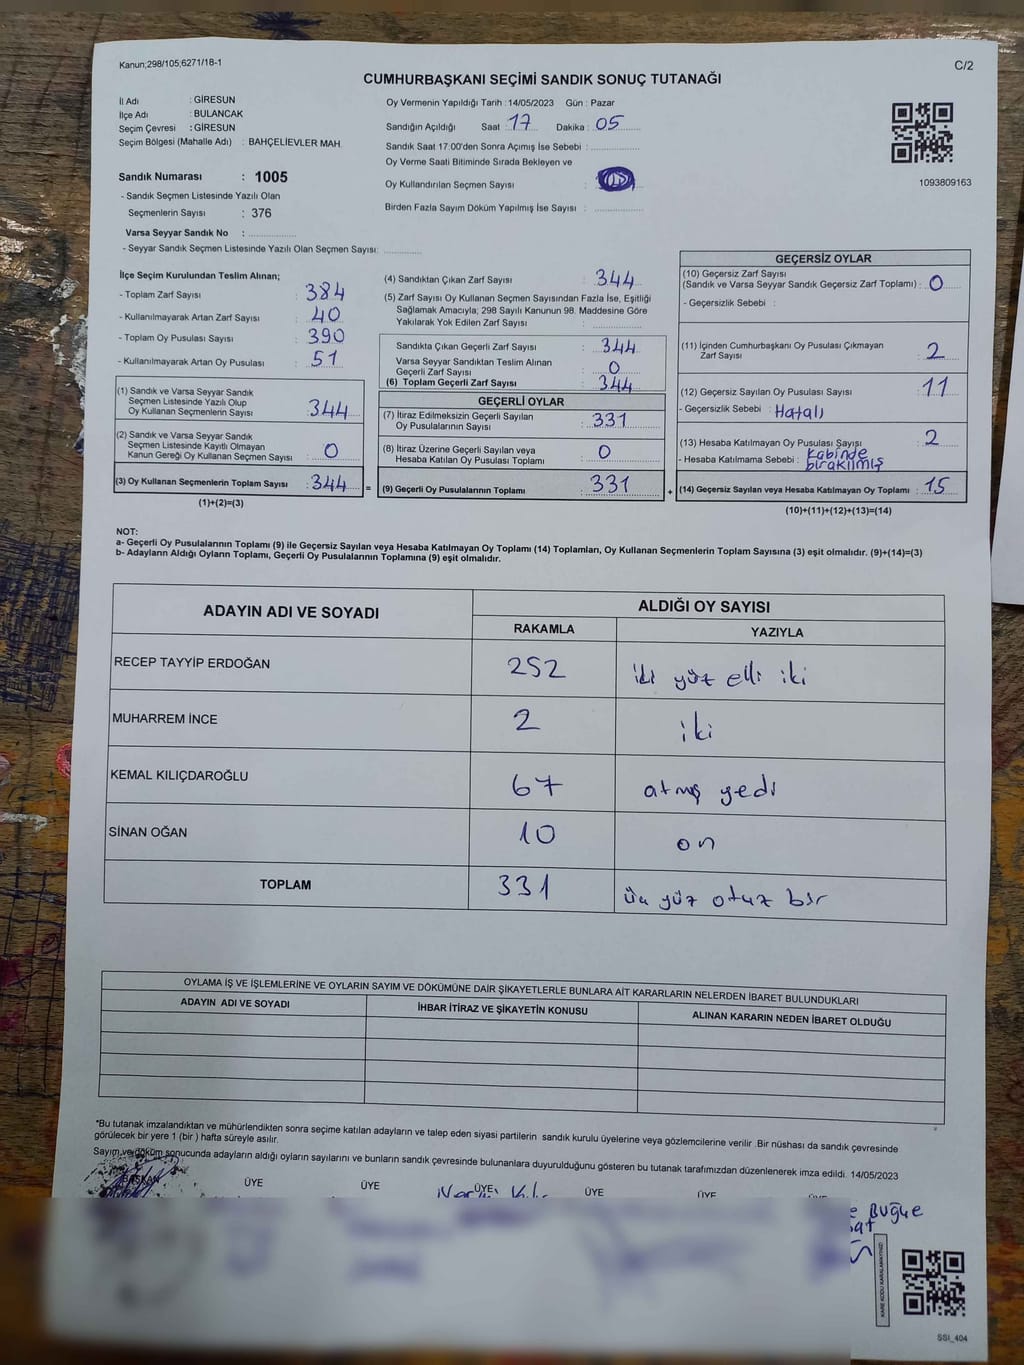 Kanun;298/105;6271/18-1
C/2
CUMHURBAŞKANI SEÇİMİ SANDIK SONUÇ TUTANAĞI
İl Adı : GİRESUN
İlçe Adı : BULANCAK
Seçim Çevresi : GİRESUN
Seçim Bölgesi (Mahalle Adı) : BAHÇELİEVLER MAH.
Oy Vermenin Yapıldığı Tarih : 14/05/2023 Gün : Pazar
Sandığın Açıldığı Saat : 17 Dakika : 05
Sandık Saat 17:00'den Sonra Açımış İse Sebebi :
Oy Verme Saati Bitiminde Sırada Bekleyen ve
Oy Kullandırılan Seçmen Sayısı :
Birden Fazla Sayım Döküm Yapılmış İse Sayısı :
1093809163
Sandık Numarası : 1005
- Sandık Seçmen Listesinde Yazılı Olan
Seçmenlerin Sayısı : 376
Varsa Seyyar Sandık No :
- Seyyar Sandık Seçmen Listesinde Yazılı Olan Seçmen Sayısı:
İlçe Seçim Kurulundan Teslim Alınan;
- Toplam Zarf Sayısı : 384
- Kullanılmayarak Artan Zarf Sayısı : 40
- Toplam Oy Pusulası Sayısı : 390
- Kullanılmayarak Artan Oy Pusulası : 51
(1) Sandık ve Varsa Seyyar Sandık
Seçmen Listesinde Yazılı Olup
Oy Kullanan Seçmenlerin Sayısı : 344
(2) Sandık ve Varsa Seyyar Sandık
Seçmen Listesinde Kayıtlı Olmayan
Kanun Gereği Oy Kullanan Seçmen Sayısı : 0
(3) Oy Kullanan Seçmenlerin Toplam Sayısı : 344 =
(1)+(2)=(3)
(4) Sandıktan Çıkan Zarf Sayısı : 344
(5) Zarf Sayısı Oy Kullanan Seçmen Sayısından Fazla İse, Eşitliği
Sağlamak Amacıyla; 298 Sayılı Kanunun 98. Maddesine Göre
Yakılarak Yok Edilen Zarf Sayısı :
Sandıkta Çıkan Geçerli Zarf Sayısı : 344
Varsa Seyyar Sandıktan Teslim Alınan
Geçerli Zarf Sayısı : 0
(6) Toplam Geçerli Zarf Sayısı : 344
GEÇERLİ OYLAR
(7) İtiraz Edilmeksizin Geçerli Sayılan
Oy Pusulalarının Sayısı : 331
(8) İtiraz Üzerine Geçerli Sayılan veya
Hesaba Katılan Oy Pusulası Toplamı : 0
(9) Geçerli Oy Pusulalarının Toplamı : 331 +
GEÇERSİZ OYLAR
(10) Geçersiz Zarf Sayısı
(Sandık ve Varsa Seyyar Sandık Geçersiz Zarf Toplamı) : 0
- Geçersizlik Sebebi :
(11) İçinden Cumhurbaşkanı Oy Pusulası Çıkmayan
Zarf Sayısı : 2
(12) Geçersiz Sayılan Oy Pusulası Sayısı : 11
- Geçersizlik Sebebi : Hatalı
(13) Hesaba Katılmayan Oy Pusulası Sayısı : 2
- Hesaba Katılmama Sebebi : kabinde
bırakılmış
(14) Geçersiz Sayılan veya Hesaba Katılmayan Oy Toplamı : 15
(10)+(11)+(12)+(13)=(14)
NOT:
a- Geçerli Oy Pusulalarının Toplamı (9) ile Geçersiz Sayılan veya Hesaba Katılmayan Oy Toplamı (14) Toplamları, Oy Kullanan Seçmenlerin Toplam Sayısına (3) eşit olmalıdır. (9)+(14)=(3)
b- Adayların Aldığı Oyların Toplamı, Geçerli Oy Pusulalarının Toplamına (9) eşit olmalıdır.
ADAYIN ADI VE SOYADI
ALDIĞI OY SAYISI
RAKAMLA YAZIYLA
RECEP TAYYİP ERDOĞAN 252 iki yüz elli iki
MUHARREM İNCE 2 iki
KEMAL KILIÇDAROĞLU 67 atmış yedi
SİNAN OĞAN 10 on
TOPLAM 331 üç yüz otuz bir
OYLAMA İŞ VE İŞLEMLERİNE VE OYLARIN SAYIM VE DÖKÜMÜNE DAİR ŞİKAYETLERLE BUNLARA AİT KARARLARIN NELERDEN İBARET BULUNDUKLARI
ADAYIN ADI VE SOYADI İHBAR İTİRAZ VE ŞİKAYETİN KONUSU ALINAN KARARIN NEDEN İBARET OLDUĞU
*Bu tutanak imzalandıktan ve mühürlendikten sonra seçime katılan adayların ve talep eden siyasi partilerin sandık kurulu üyelerine veya gözlemcilerine verilir .Bir nüshası da sandık çevresinde
görülecek bir yere 1 (bir ) hafta süreyle asılır.
Sayım ve döküm sonucunda adayların aldığı oyların sayılarını ve bunların sandık çevresinde bulunanlara duyurulduğunu gösteren bu tutanak tarafımızdan düzenlenerek imza edildi. 14/05/2023
BAŞKAN ÜYE ÜYE ÜYE ÜYE ÜYE ÜYE
Buğçe
KARE KODU KARALAMAYINIZ!
SSI_404